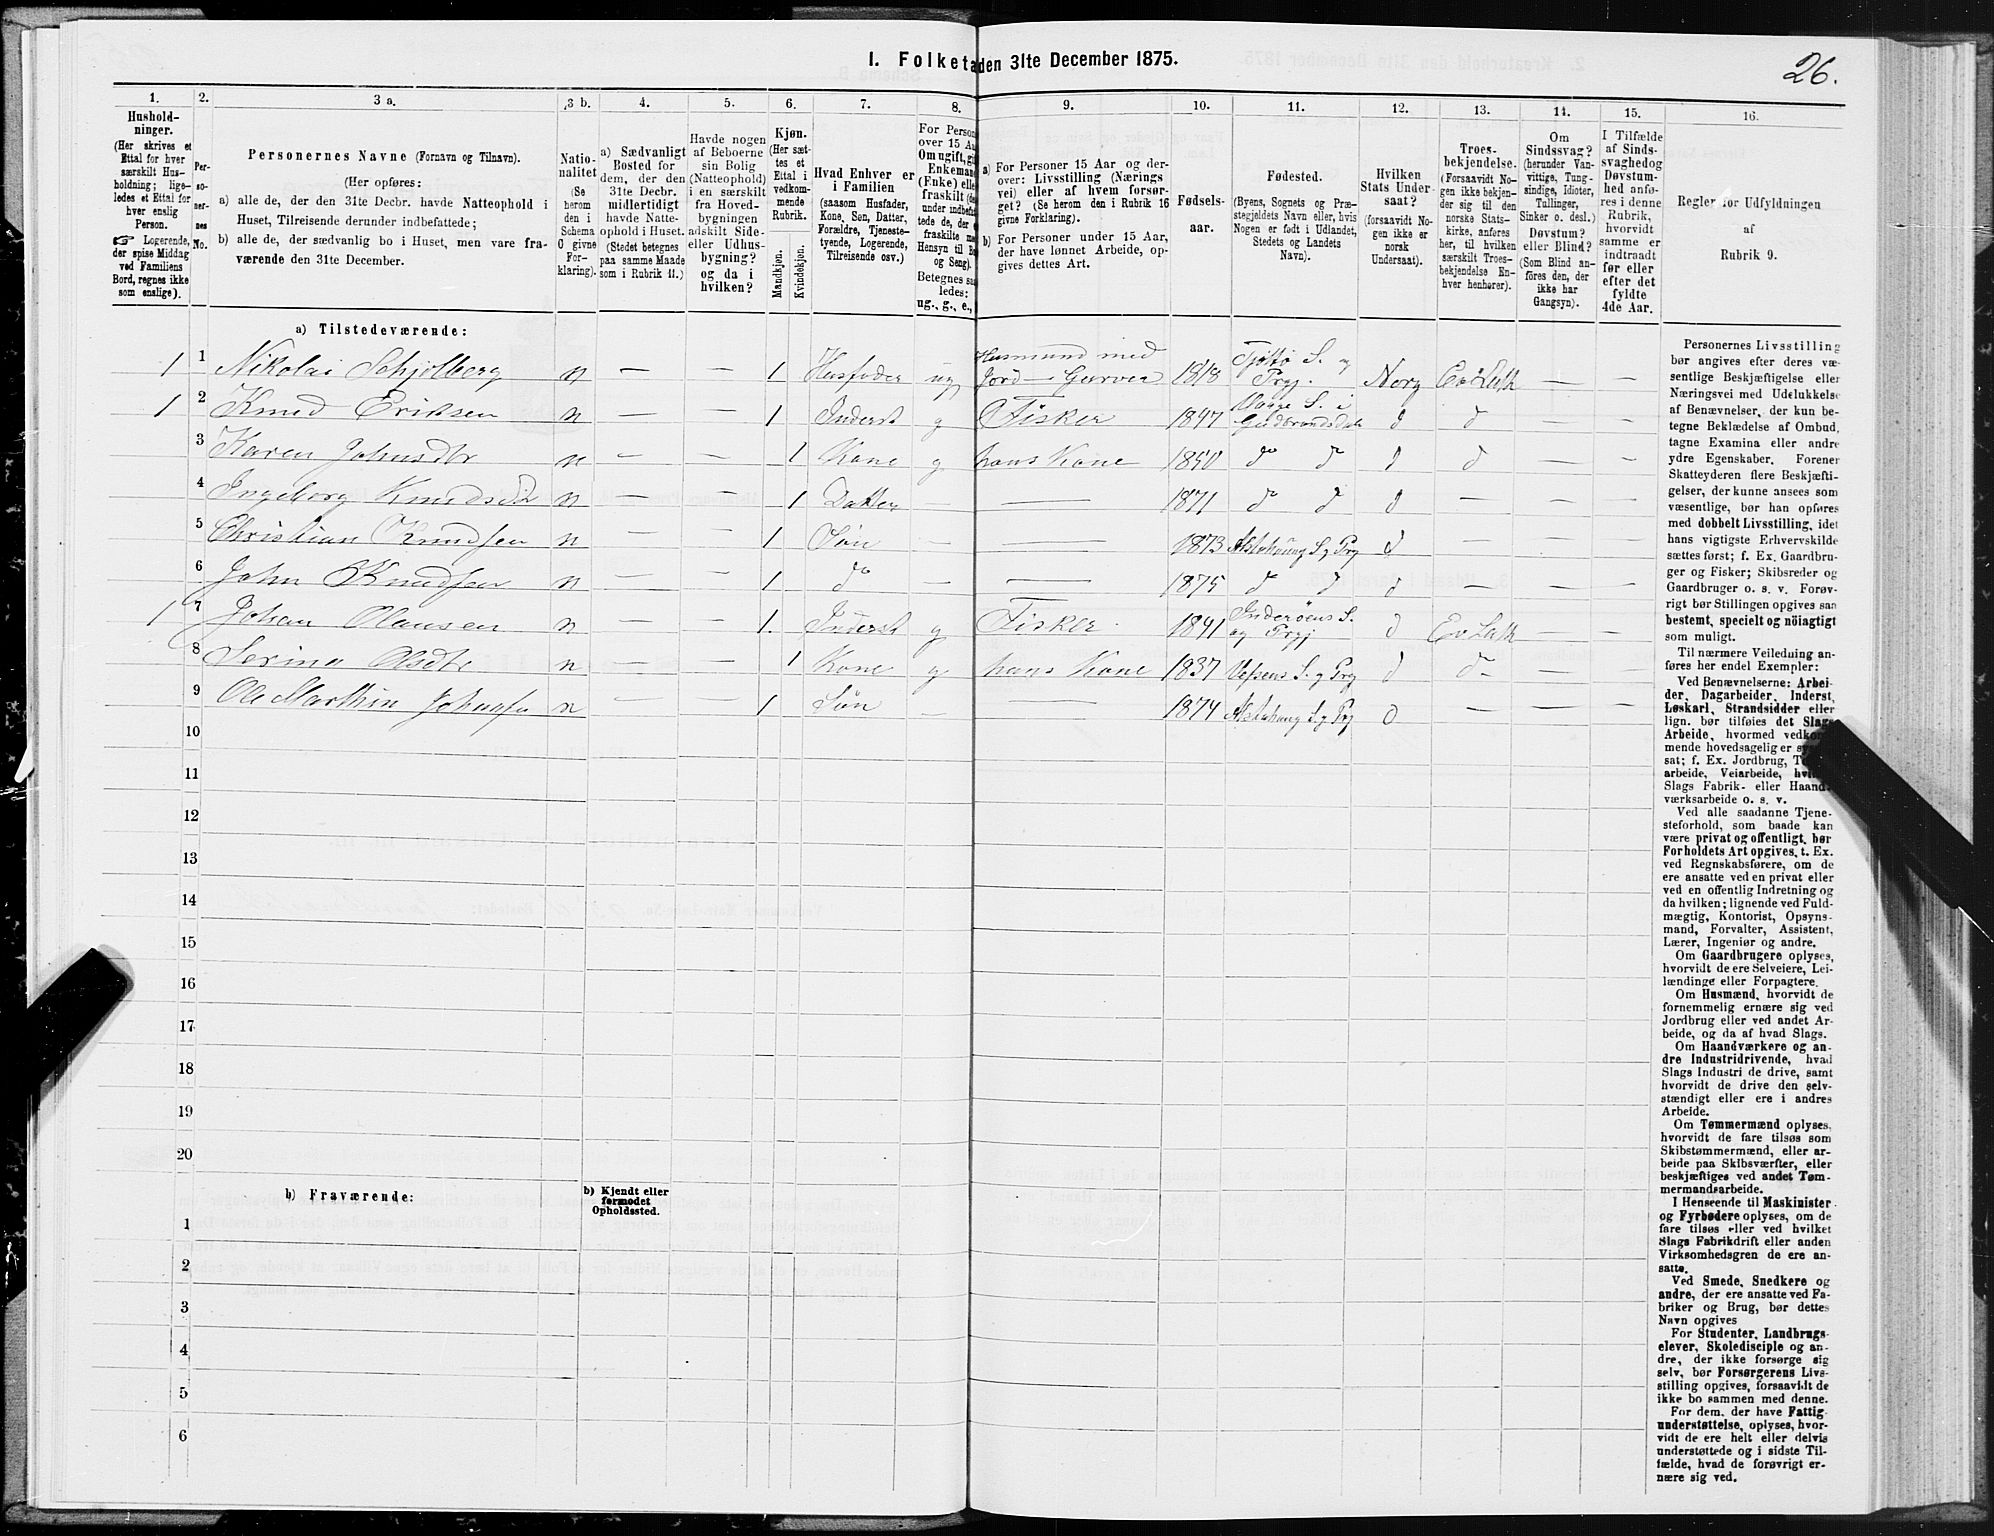 I. Folketa den 31te December 1875.
26.
1.
2.
3 a.
3 b.
4.
5.
6.
7.
8.
9.
10.
11.
12.
13.
14.
15.
16.
Hushold-
ninger.
(Her skrives et
Ettal for hver
særskilt Hus-
holdning; lige-
ledes et Ettal for
hver enslig
Person.
☞ Logerende,
der spise Middag
ved Familiens
Bord, regnes ikke
som enslige).
Per-
so-
ner-
nes
No.
Personernes Navne (Fornavn og Tilnavn).
(Her opføres:
a) alle de, der den 31te Decbr. havde Natteophold i
Huset, Tilreisende derunder indbefattede;
b) alle de, der sædvanlig bo i Huset, men vare fra-
værende den 31te December.
Natio-
nalitet
(Se
herom
den i
Schema
O givne
For-
klaring).
a) Sædvanligt
Bosted for
dem, der den
31te Decbr.
midlertidigt
havde Natte-
ophold i Huset.
(Stedet betegnes
paa samme Maade
som i Rubrik 11.)
Havde nogen
af Beboerne
sin Bolig
(Natteophold)
i en særskilt
fra Hoved-
bygningen
adskilt Side-
eller Udhus-
bygning?
og da i
hvilken?
Kjøn.
(Her sæt-
tes et
Ettal i
vedkom-
mende
Rubrik.
Mandkjøn.
Kvindekjøn.
Hvad Enhver er
i Familien
(saasom Husfader,
Kone, Søn, Datter,
Forældre, Tjeneste-
tyende, Logerende,
Tilreisende osv.)
For Person
over 15 Aa
Om ugift, gi
Enkeman
(Enke) elle
fraskilt (de
under indbefat
tede de, der e
fraskilte me
Hensyn til Bo
og Seng).
Betegnes saa
ledes:
ug., g., e.,
a) For Personer 15 Aar og der-
over: Livsstilling (Nærings
vei) eller af hvem forsør-
get? (Se herom den i Rubrik 16
givne Forklaring).
b) For Personer under 15 Aar,
der have lønnet Arbeide, op-
gives dettes Art.
Fødsels-
aar.
Fødested.
(Byens, Sognets og Præ-
stegjeldets Navn eller, hvis
Nogen er født i Udlandet,
Stedets og Landets
Navn).
Hvilken
Stats Under-
saat?
(forsaavidt No-
gen ikke er
norsk
Undersaat).
Troes-
bekjendelse.
(Forsaavidt No-
gen ikke bekjen-
der sig til den
norske Stats-
kirke, anføres
her, til hvilken
særskilt Troes-
bekjendelse En-
hver henhører).
Om
Sindssvag?
(herunder Van-
vittige, Tung-
sindige, Idioter,
Tullinger,
Sinker o. desl.)
Døvstum?
eller Blind?
(Som Blind an-
føres den, der
ikke har
Gangsyn).
I Tilfælde
af Sinds-
svaghed og
Døvstum-
hed anfø-
res i denne
Rubrik,
hvorvidt
samme er
indtraadt
før eller
efter det
fyldte
4de Aar.
Regler for Udfyldningen
af
Rubrik 9.
a) Tilstedeværende:
1 1 Nikolai Schjolberg n — — 1 Husfader ug Husmand med Jord - Garver 1818 Tjøttø S. og Prgj. Norg Ev Luth — —
1 2 Knud Eriksen n — — 1 Inderst g Fisker 1847 Vaage S. i Gudbrandsdale d d — —
3 Karen Johnsdtr n — — 1 Kone g hans Kone 1850 do d d d — —
4 Ingeborg Knudsdtr n — — 1 Datter — — 1871 do d d — — —
5 Christian Knudsen n — — 1 Søn — — 1873 Alstahaug S. g Prgj d — — —
6 John Knudsen n — — 1 do — — 1875 d d d d — — —
1 7 Johan Olausen n — — 1. Inderst g Fisker 1841 Inderøens S. og Prgj d Ev Luth — —
8 Serina Olsdtr n — — 1 Kone g hans Kone 1837 Vefsens S. g Prgj d d — —
9 Ole Marthin Johansen n — — 1 Søn — — 1874 Alstahaug S. g Prgj d — — —
10
11
12
13
14
15
16
17
18
19
20
b) Fraværende:
b) Kjendt eller
formodet
Opholdssted.
1
2
3
4
5
6
Personernes Livsstilling
bør angives efter deres væ-
sentlige Beskjæftigelse eller
Næringsvei med Udelukkelse
af Benævnelser, der kun be-
tegne Beklædelse af Ombud,
tagne Examina eller andre
ydre Egenskaber. Forener
Skatteyderen flere Beskjæfti-
gelser, der kunne ansees som
væsentlige, bør han opføres
med dobbelt Livsstilling, idet
hans vigtigste Erhvervskilde
sættes først; f. Ex. Gaardbru-
ger og Fisker; Skibsreder og
Gaardbruger o. s. v. Forøv-
rigt bør Stillingen opgives saa
bestemt, specielt og nöiagtigt
som muligt.
Til nærmere Veiledning an-
føres her endel Exempler:
Ved Benævnelserne: Arbei-
der, Dagarbeider, Inderst,
Løskarl, Strandsidder eller
lign. bør tilføies det Slags
Arbeide, hvormed vedkom-
mende hovedsagelig er sys
sat; f. Ex. Jordbrug, T
arbeide, Veiarbeide, hvil
Slags Fabrik- eller Haand-
værksarbeide o. s. v.
Ved alle saadanne Tjene-
steforhold, som baade kan
være privat og offentligt, bør
Forholdets Art opgives, t. Ex.
ved Regnskabsførere, om de
ere ansatte ved en privat eller
ved en offentlig Indretning og
da hvilken; lignende ved Fuld-
mægtig, Kontorist, Opsyns-
mand, Forvalter, Assistent,
Lærer, Ingeniør og andre.
Om Gaardbrugere oplyses,
hvorvidt de ere Selveiere, Lei-
lændinge eller Forpagtere.
Om Husmænd, hvorvidt de
fornemmelig ernære sig ved
Jordbrug eller ved andet Ar-
beide, og da af hvad Slags.
Om Haandværkere og an-
dre Industridrivende, hvad
Slags Industri de drive, samt
hvorvidt de drive den selv-
stændigt eller ere i andres
Arbeide.
Om Tømmermænd oplyses,
hvorvidt de fare tilsøs som
Skibstømmermænd, eller ar-
beide paa Skibsværfter, eller
beskjæftiges ved andet Tøm-
mermandsarbeide.
I Henseende til Maskinister
og Fyrbødere oplyses, om de
fare tilsøs eller ved hvilket
Slags Fabrikdrift eller anden
Virksomhedsgren de ere an-
satte.
Ved Smede, Snedkere og
andre, der ere ansatte ved Fa-
briker og Brug, bør dettes
Navn opgives
For Studenter, Landbrugs-
elever, Skoledisciple og an-
dre, der ikke forsørge sig
selv, bør Forsørgerens Livs-
stilling opgives, forsaavidt de
ikke bo sammen med denne.
For dem, der have Fattig-
understøttelse, oplyses, hvor-
vidt de ere helt eller delvis
understøttede og i sidste Til-
fælde, hvad de forøvrigt er-
nære sig ved.